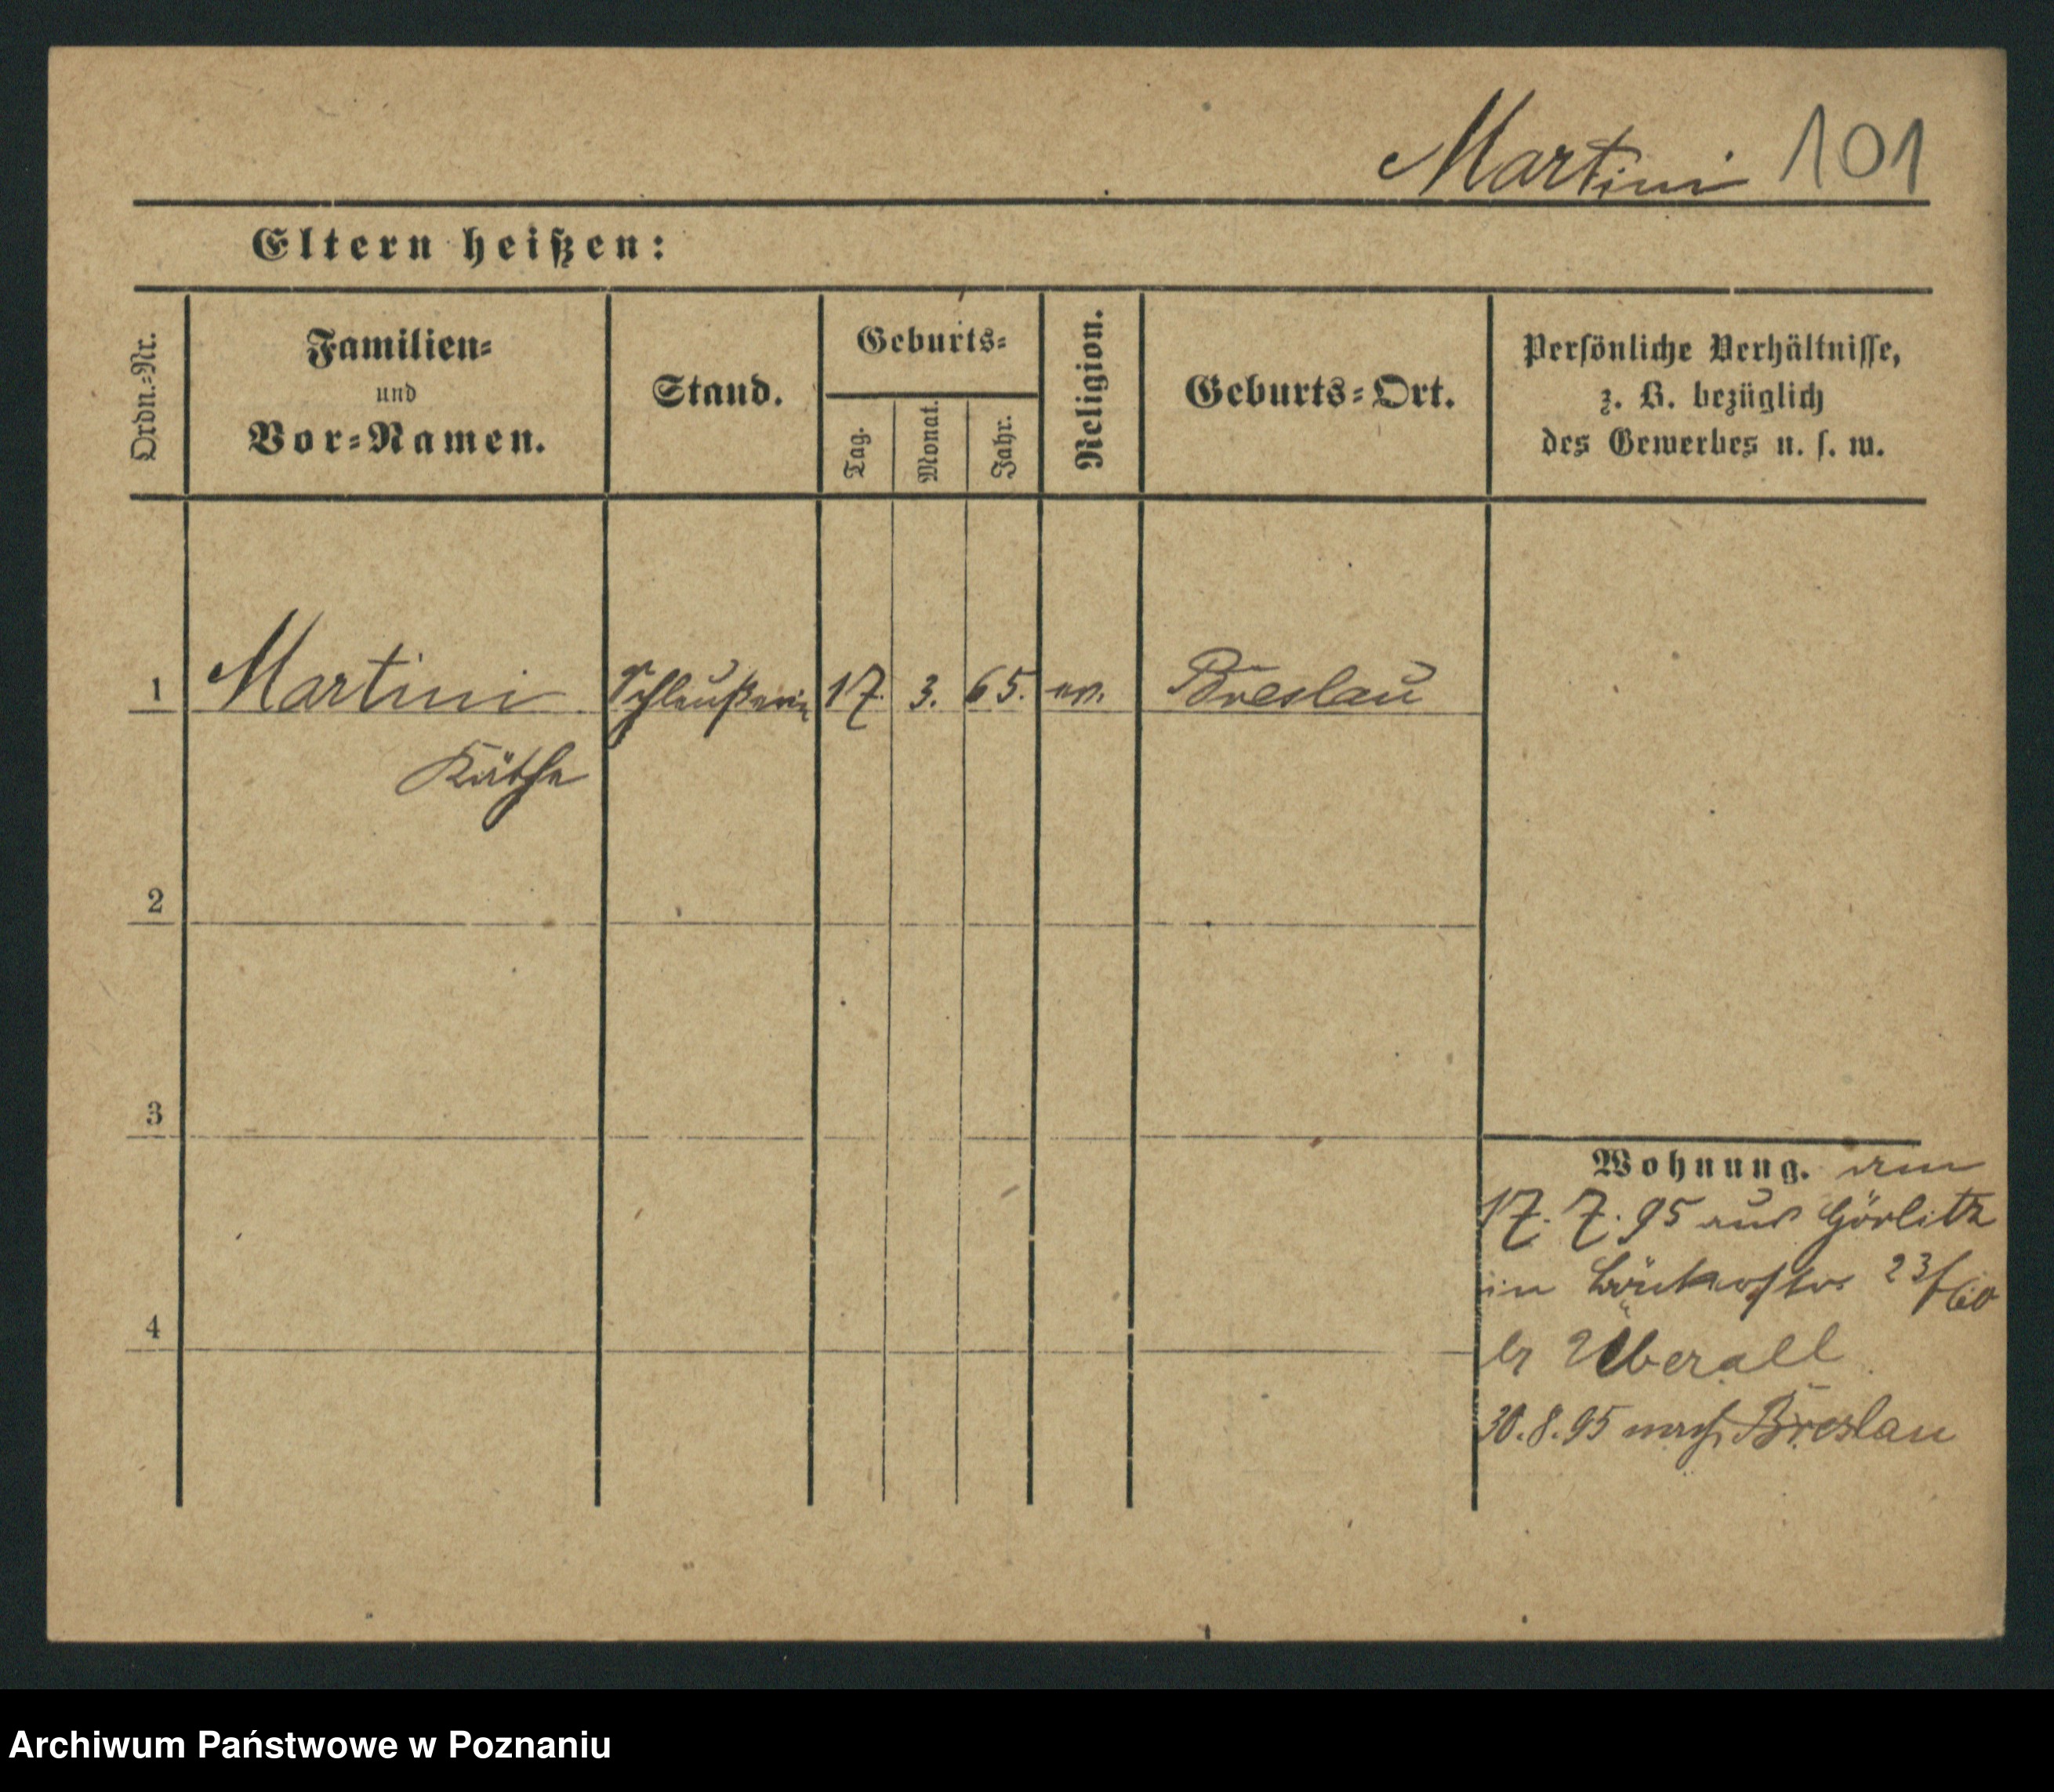 Martini 101
Eltern heißen:
Ordn.-Nr.
Familien-
und
Vor-Namen.
Stand.
Geburts-
Tag.
Monat.
Jahr.
Religion.
Geburts-Ort.
Persönliche Verhältnisse,
z. B. bezüglich
des Gewerbes u. s. w.
1 Martini Schleußerin 17. 3. 65. ev. Breslau
Käthe
2
3
4
Wohnung. am
17. 7. 95 aus Görlitz
in 23/60
b/ Überall
30.8.95 nach Breslau
Archiwum Państwowe w Poznaniu